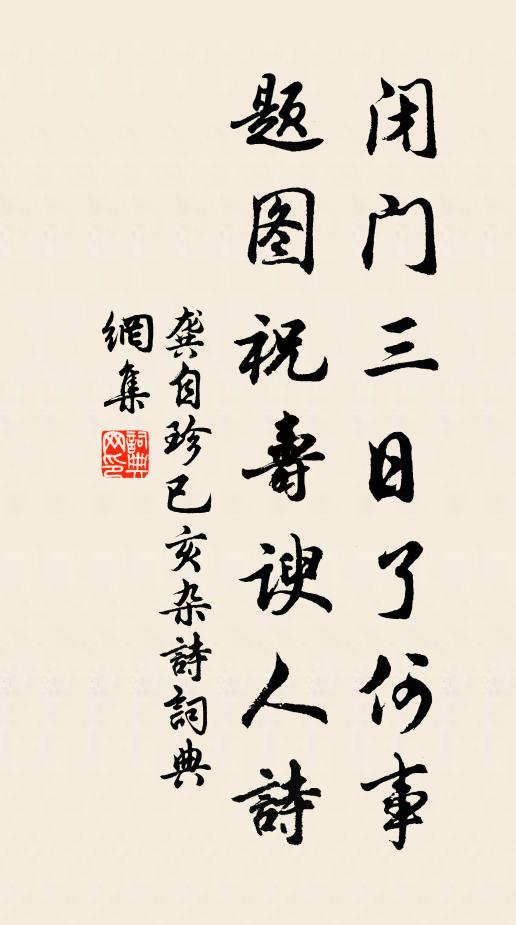 闭门三日了何事
题图祝壽谀人詩
龚自珍已亥杂詩詞典
網集
詞典网印